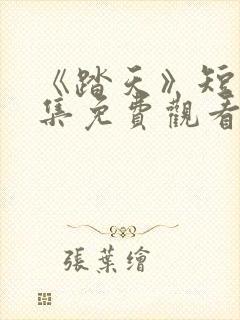 《踏天》短
集免費觀看
張葉繪